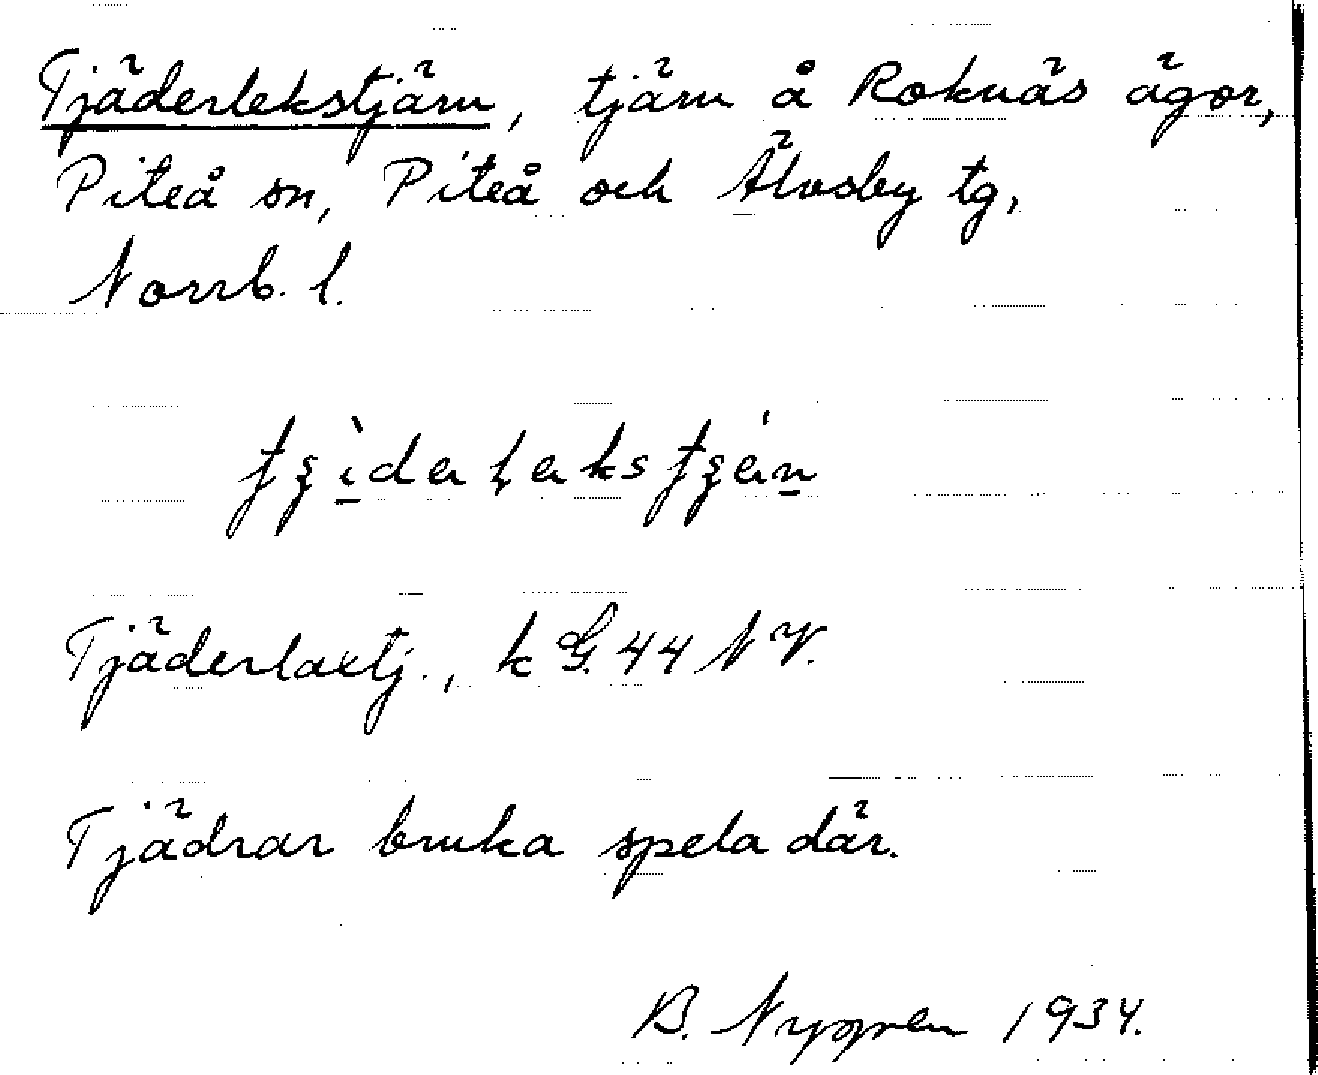 Tjäderlekstjärn, tjärn å Roknäs ägor,
Piteå sn, Piteå och Älvsby tg,
Norrb. l.
Tjäderlaxtj., k G. 44 N V.
Tjädrar bruka spela där.
B. Nygren 1934.